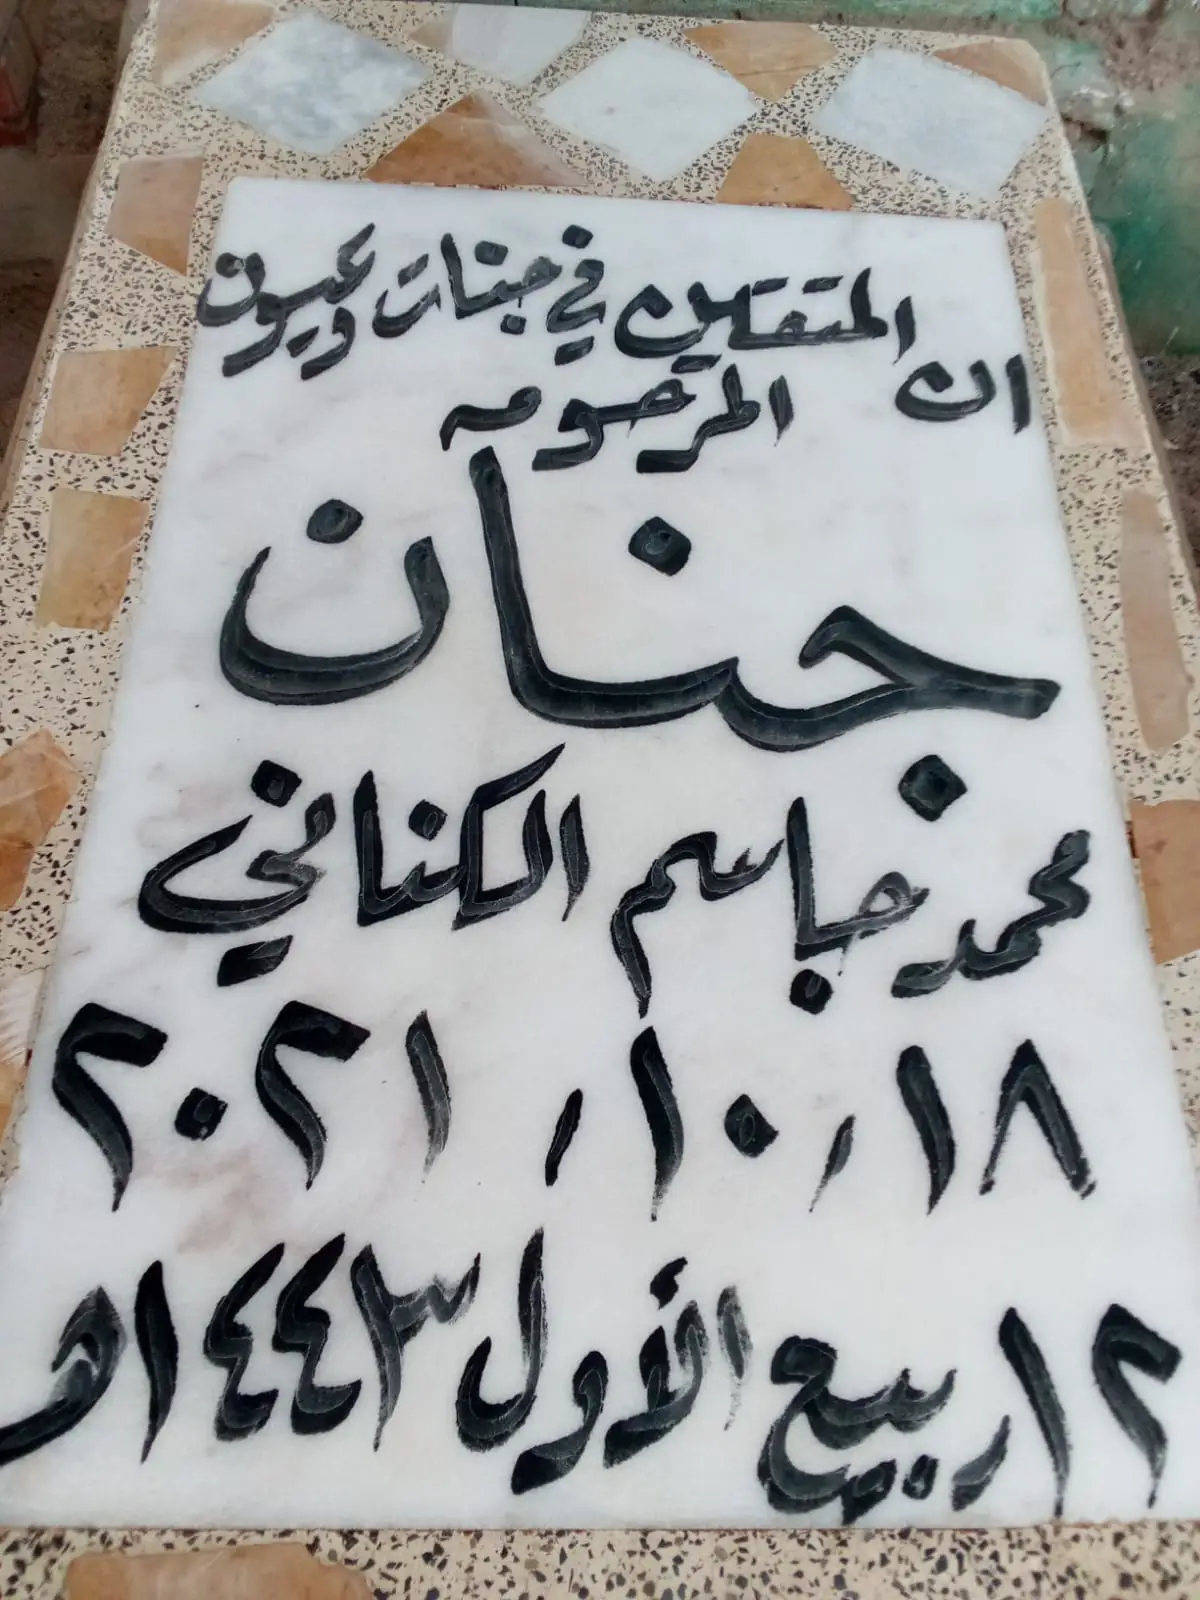 ان المتقين في جنات وعيون
المرحومه
جنان
محمد جاسم الكناني
١٨ / ١٠ / ٢٠٢١
١٢ ربيع الأول ١٤٤٣ هـ